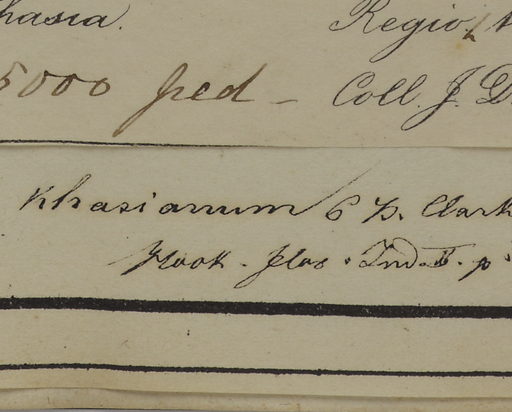 hasia. Regio,
5000 ped - Coll. J. D
Khasianum C B. Clark
Hook. Flor. Ind. p.